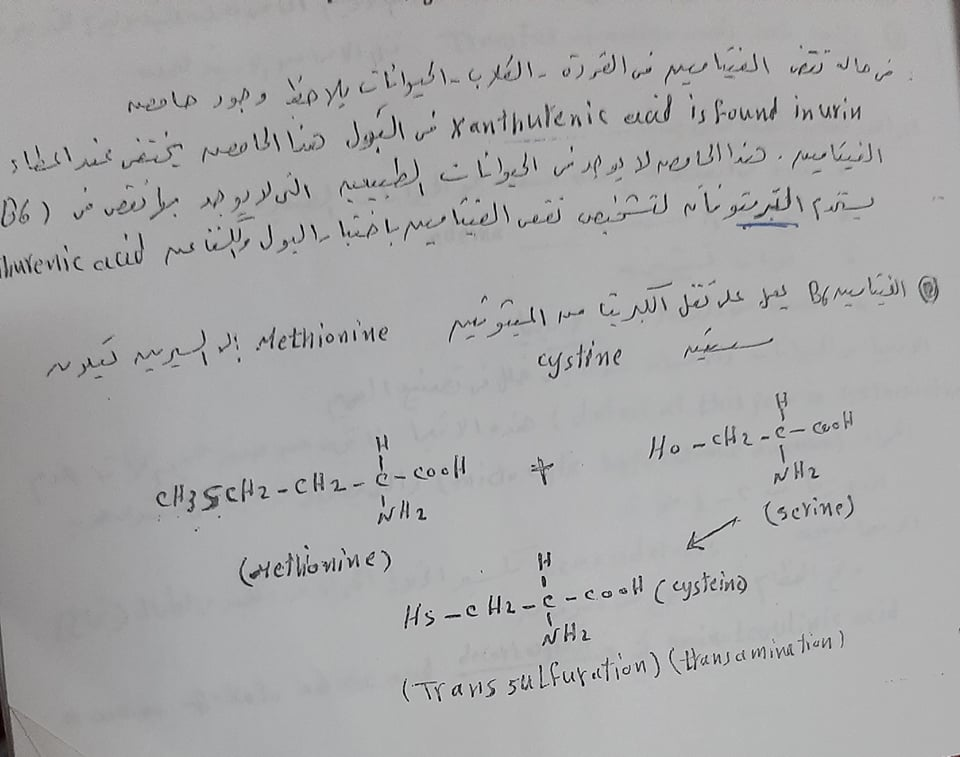 فى حالة نقص الفيتامين فى القردة - الكلاب - الحيوانات يلاحظ وجود حامض
Xanthurenic acid is found in urin فى البول هذا الحامض يختفى عند اعطاء
الفيتامين. هذا الحامض لا يوجد فى الحيوانات الطبيعيه التى لا يوجد بها نقص فى (B6
يستخدم التربتوفان لتشخيص نقص الفيتامين باختبار البول والكشف عن thurenic acid
الفيتامين B6 يعمل على نقل الكبريت من الميثونين Methionine إلى السيرين
سستين cystine
CH3SCH2-CH2-C-COOH
H
NH2
+
HO-CH2-C-COOH
H
NH2
(Methionine)
(serine)
HS-CH2-C-COOH (cysteine)
H
NH2
(Trans sulfuration) (transamination)